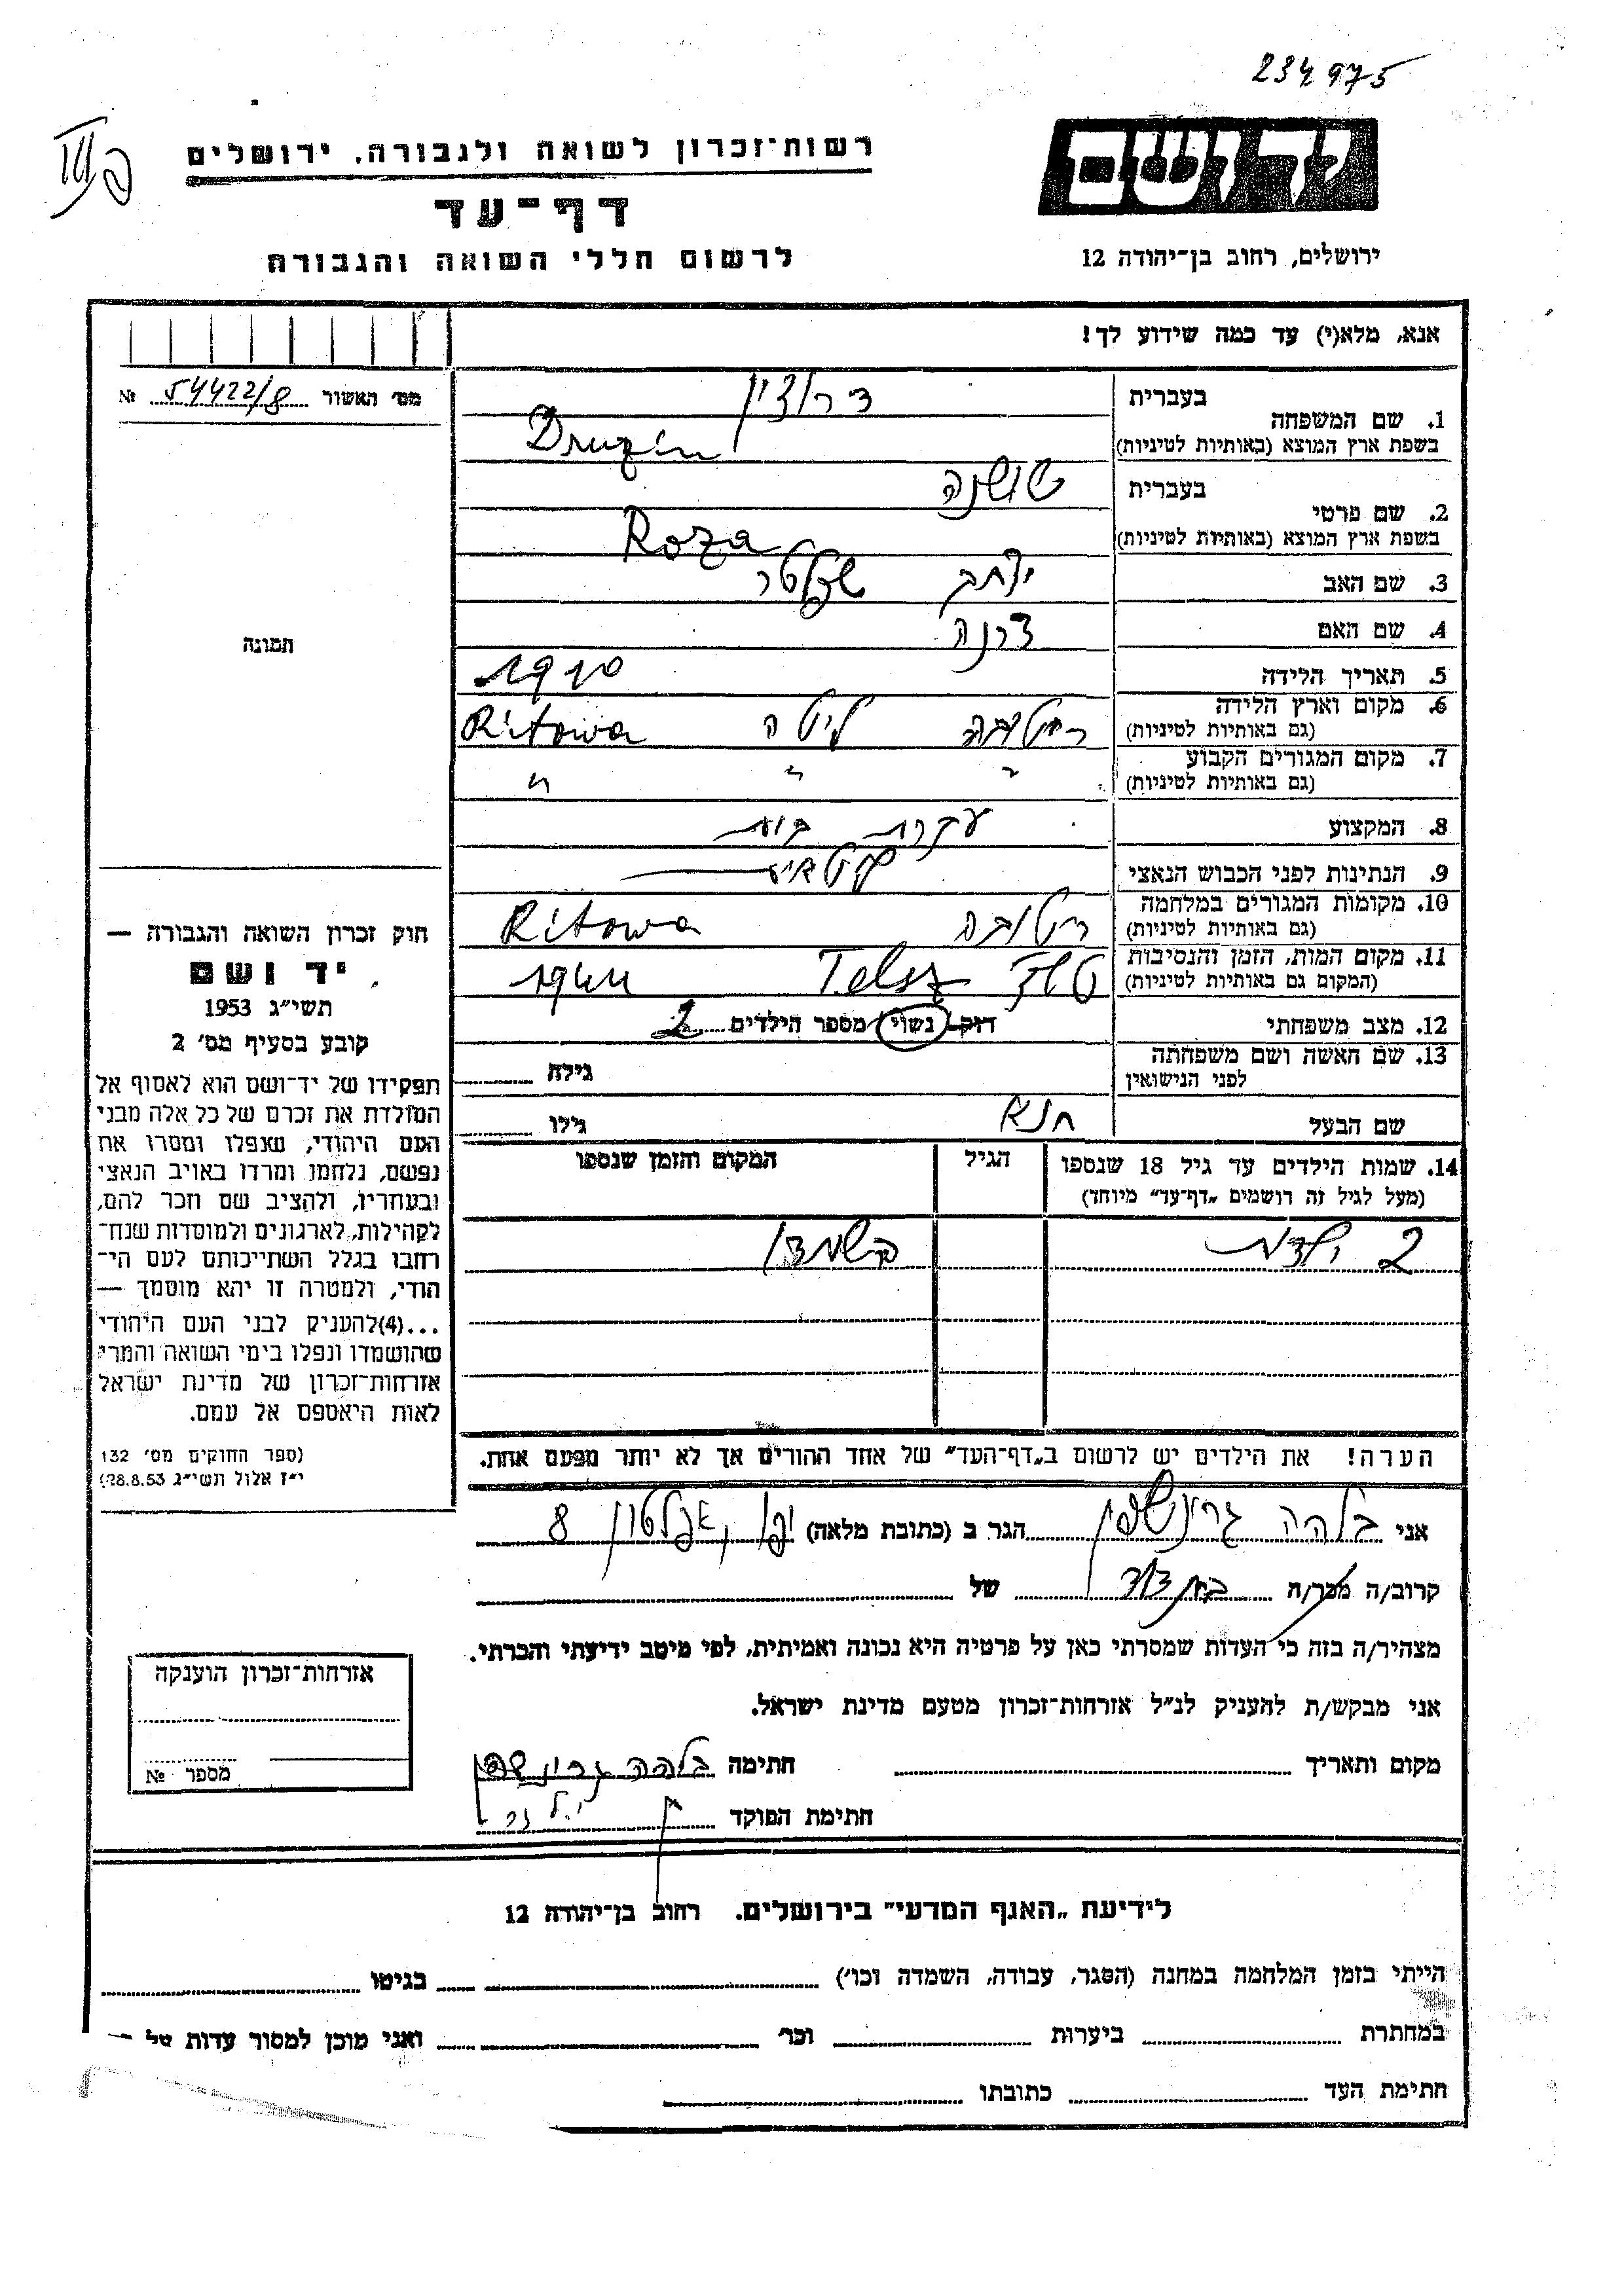 234975
רשות־זכרון לשואה ולגבורה, ירושלים
דף־עד
לרשום חללי השואה והגבורה
יד ושם
ירושלים, רחוב בן־יהודה 12
אנא, מלא(י) עד כמה שידוע לך!
מס' האשור 54422/8 №
1. שם המשפחה בעברית דרוזין
בשפת ארץ המוצא (באותיות לטיניות) Druzin
2. שם פרטי בעברית שושנה
בשפת ארץ המוצא (באותיות לטיניות) Roza
3. שם האב יצחק
4. שם האם
5. תאריך הלידה 1910
6. מקום וארץ הלידה (גם באותיות לטיניות) ריטובה ליטה Ritowa
7. מקום המגורים הקבוע (גם באותיות לטיניות) " " "
8. המקצוע עקרת בית
9. הנתינות לפני הכבוש הנאצי ליטאית
10. מקומות המגורים במלחמה (גם באותיות לטיניות) ריטובה Ritowa
11. מקום המות, הזמן והנסיבות (המקום גם באותיות לטיניות) טלז Telsz 1941
12. מצב משפחתי רווק נשוי מספר הילדים 2
13. שם האשה ושם משפחתה לפני הנישואין גילה
שם הבעל חנא גילו
14. שמות הילדים עד גיל 18 שנספו (מעל לגיל זה רושמים „דף־עד” מיוחד) הגיל המקום והזמן שנספו
2 ילדות הושמדו
הערה! את הילדים יש לרשום ב„דף־העד” של אחד ההורים אך לא יותר מפעם אחת.
תמונה
חוק זכרון השואה והגבורה —
יד ושם
תשי״ג 1953
קובע בסעיף מס' 2
תפקידו של יד־ושם הוא לאסוף אל
המולדת את זכרם של כל אלה מבני
העם היהודי, שנפלו ומסרו את
נפשם, נלחמו ומרדו באויב הנאצי
ובעוזריו, ולהציב שם וזכר להם,
לקהילות, לארגונים ולמוסדות שנח־
רבו בגלל השתייכותם לעם הי־
הודי, ולמטרה זו יהא מוסמך —
...(4)להעניק לבני העם היהודי
שהושמדו ונפלו בימי השואה והמרי
אזרחות־זכרון של מדינת ישראל
לאות היאספם אל עמם.
(ספר החוקים מס' 132
י״ז אלול תשי״ג 28.8.53)
אני בלהה גרינשפן הגר ב (כתובת מלאה) יפו 8
קרוב/ה מכר/ה בת דוד של
מצהיר/ה בזה כי העדות שמסרתי כאן על פרטיה היא נכונה ואמיתית, לפי מיטב ידיעתי והכרתי.
אני מבקש/ת להעניק לנ״ל אזרחות־זכרון מטעם מדינת ישראל.
מקום ותאריך חתימה בלהה גרינשפן
חתימת הפוקד
אזרחות־זכרון הוענקה
מספר №
לידיעת „האגף המדעי” בירושלים. רחוב בן־יהודה 12
הייתי בזמן המלחמה במחנה (הסגר, עבודה, השמדה וכו') בגיטו
במחתרת ביערות וכו' ואני מוכן למסור עדות על —
חתימת העד כתובתו